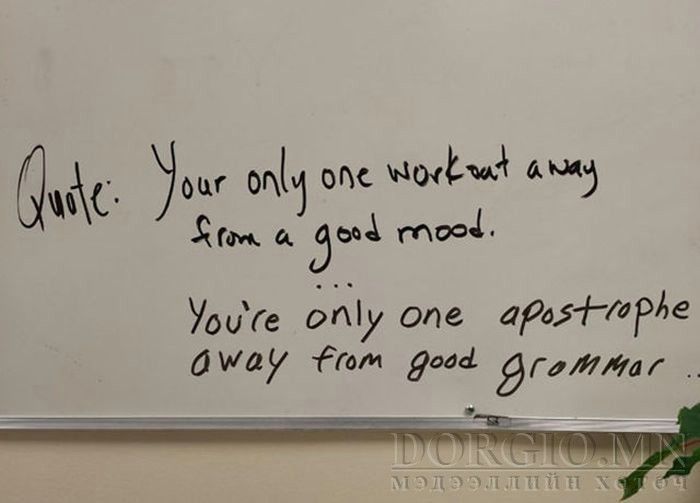 Quote: Your only one workout away
from a good mood.
...
You're only one apostrophe
away from good grammar ..
DORGIO.MN
МЭДЭЭЛЛИЙН ХӨТӨЧ